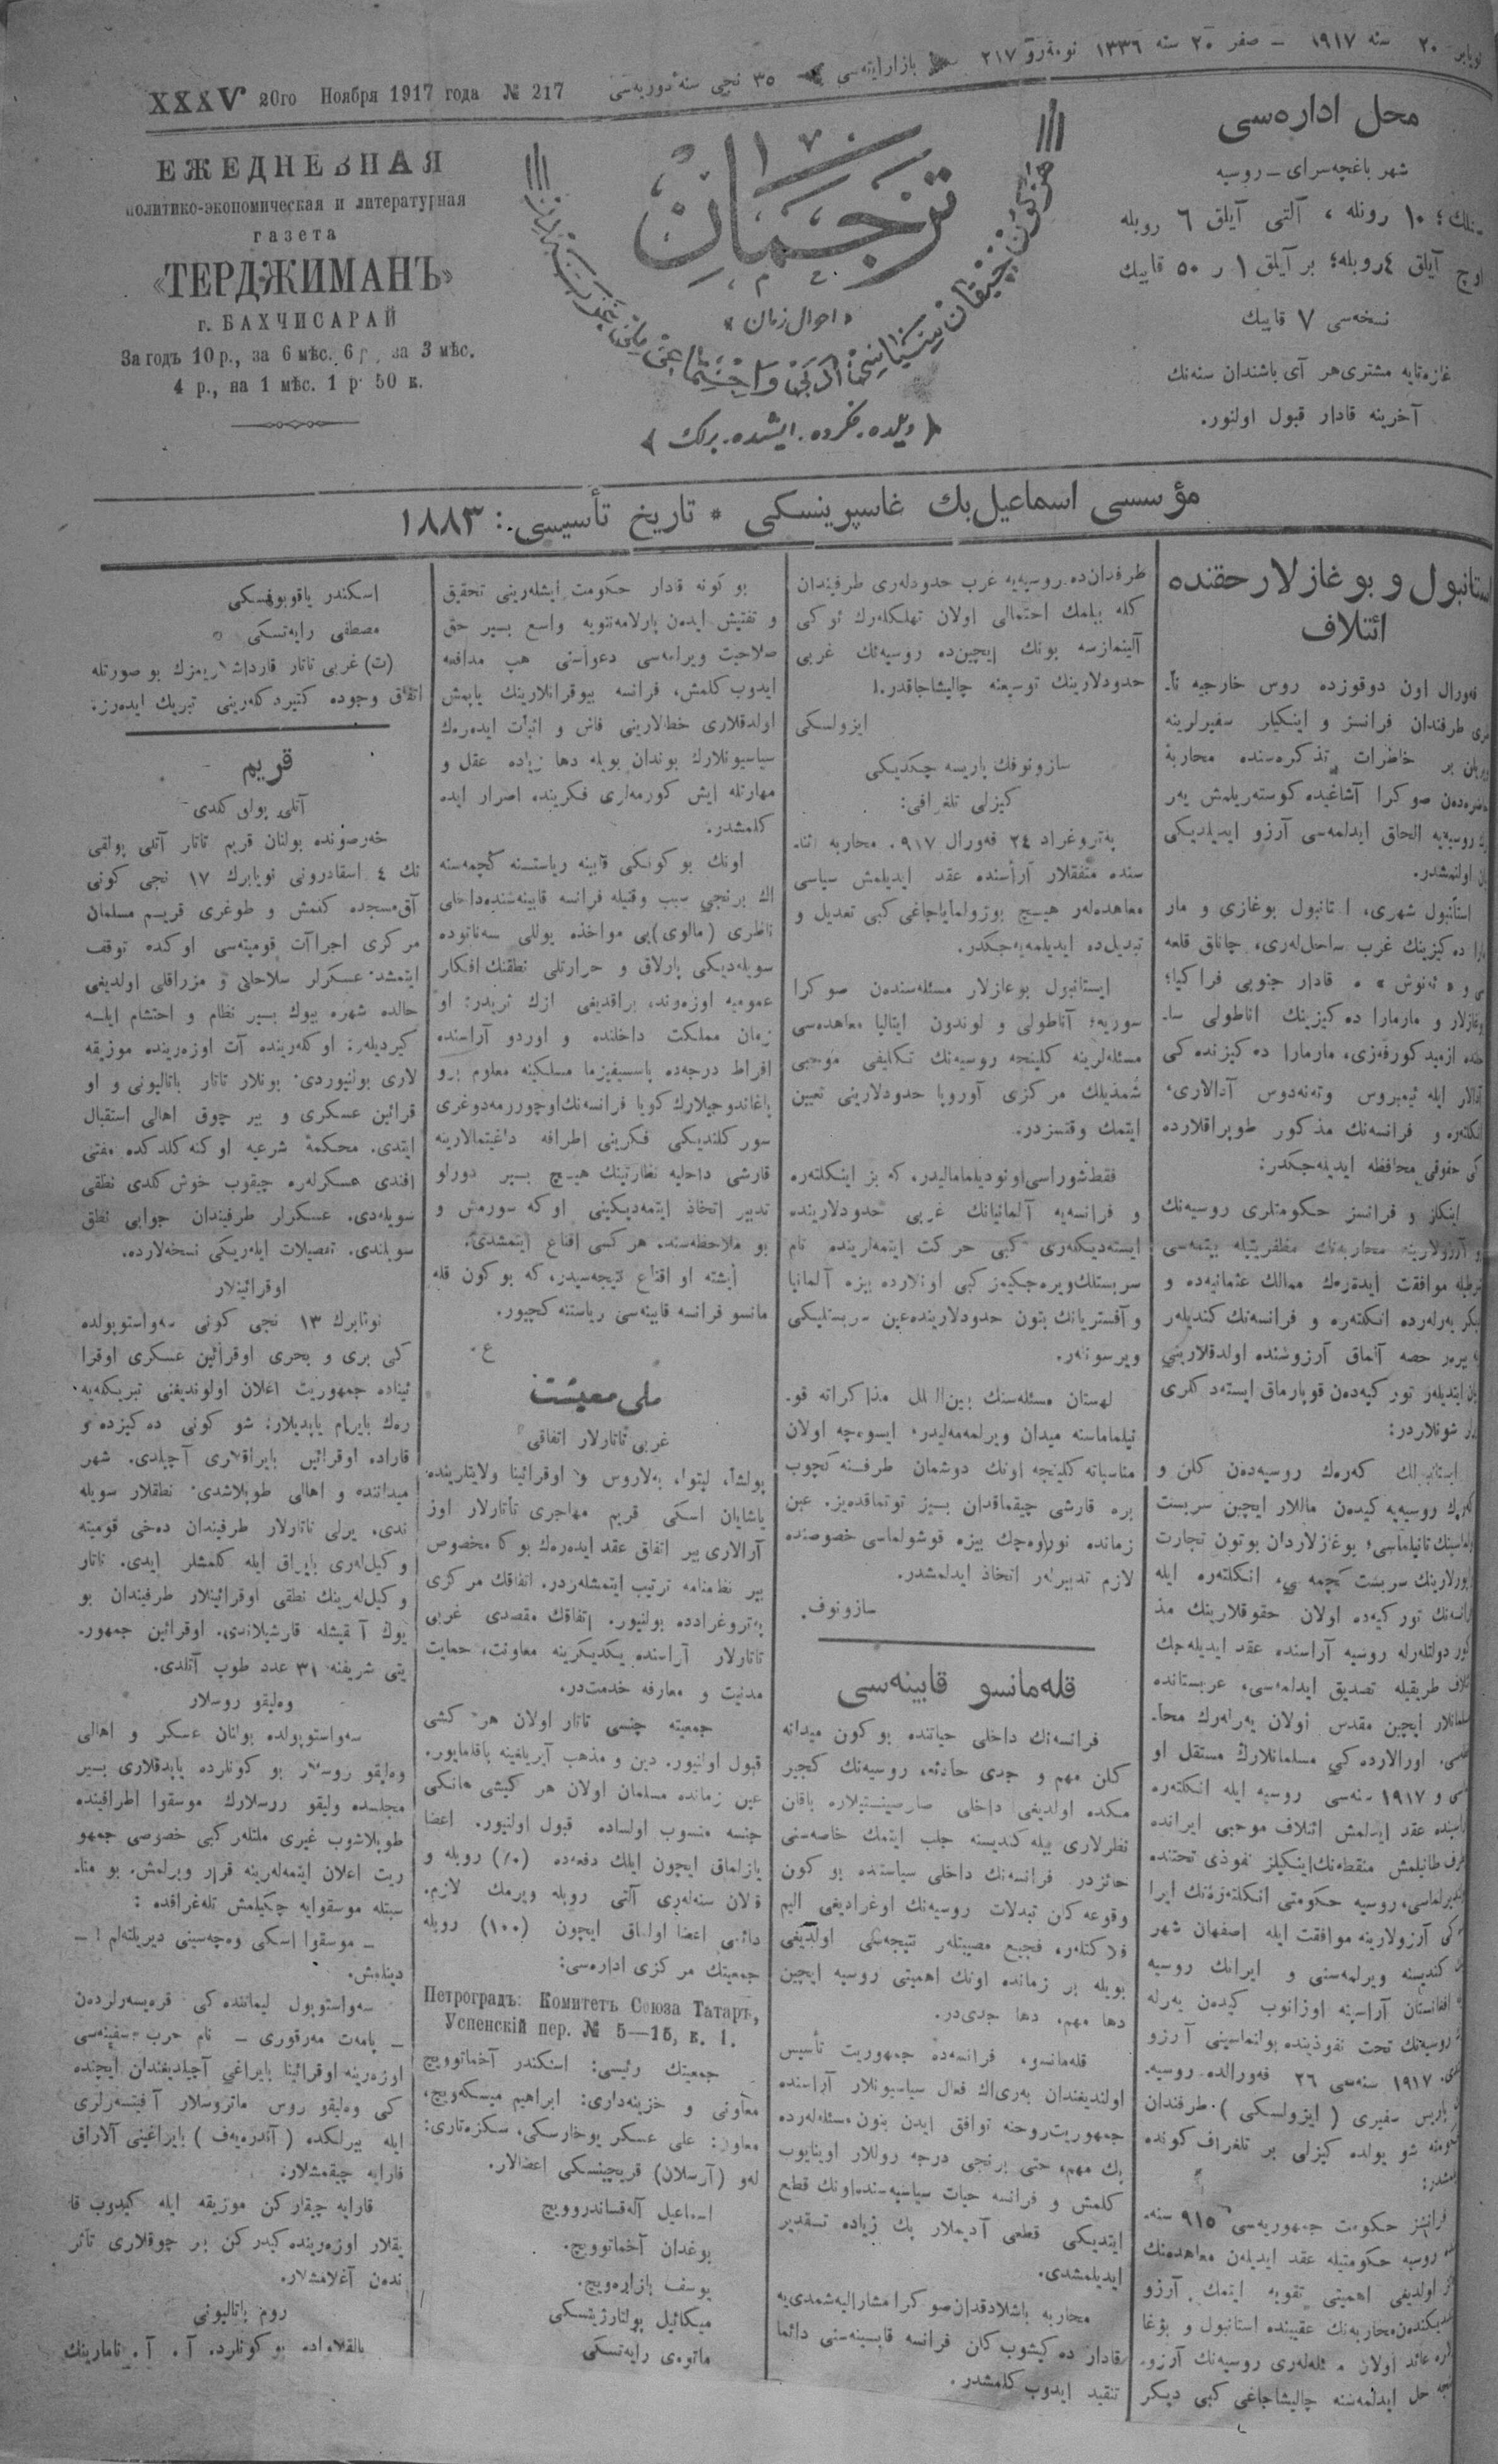 نويابر ٢٠ سنه ١٩١٧ — صفر ٢٠ سنه ١٣٣٦ نومه‌رۋ ٢١٧ بازارايته‌سی ٣٥ نچی سنه‌ٔ دوريه‌سی
XXXV 20го Ноября 1917 года № 217
محل اداره‌سی
شهر باغچه‌سرای — روسیه
١٠ روبله ، آلتی آیلق ٦ روبله
اوچ آیلق ٤ روبله؛ بر آیلق ١ ر ٥٠ قاپیك
نسخه‌سی ٧ قاپیك
غازه‌تایه مشتری هر آی باشندان سنه‌نك
آخرینه قادار قبول اولنور.
ترجمان
«احوال زمان»
﴿ دیلده . فکرده . ایشده . برلك ﴾
ЕЖЕДНЕВНАЯ
политико-экономическая и литературная
газета
«ТЕРДЖИМАНЪ»
г. БАХЧИСАРАЙ
За годъ 10 р., за 6 мѣс. 6 р., за 3 мѣс.
4 р., на 1 мѣс. 1 р 50 к.
مؤسسی اسماعیل بك غاسپرینسکی * تاریخ تأسیسی: ١٨٨٣
استانبول و بوغازلار حقنده
ائتلاف
فه‌ورال اون دوقوزده روس خارجیه نا۔
طرفندان فرانسز و اینکیلز سفیرلرینه
بر خاطرات تذکره‌سنده محاربهٔ
صوکرا آشاغیده کوسته‌ریلمش یه‌ر
روسیه‌یه الحاق ایدلمه‌سی آرزو ایدیلدیکی
اولنمشدر.
استانبول شهری، استانبول بوغازی و مار
ده‌کیزینك غرب ساحل‌لری، چاناق قلعه
و « ئه‌نوش » ه قادار جنوبی فراکیا؛
و مارمارا ده‌کیزینك اناطولی سا۔
ازمید کورفه‌زی، مارمارا ده‌کیزنده کی
ایله ئیمبروس وته‌نه‌دوس آدالاری،
و فرانسه‌نك مذکور طوپراقلارده
حقوقی محافظه ایدیله‌جکدر:
اینکلز و فرانسز حکومتلری روسیه‌نك
آرزولارینه محاربه‌نك مظفریتیله بیتمه‌سی
موافقت ایده‌رك ممالك عثمانیه‌ده و
یه‌رله‌رده انکلته‌ره و فرانسه‌نك کندیله‌ر
حصه آلماق آرزوسنده اولدقلارینی
ایتدیله‌ر تورکیه‌دن قوپارماق ایسته‌دکلری
شونلاردر:
که‌رك روسیه‌دن کلن و
روسیه‌یه کیدن ماللار ایچین سربست
بوغازلاردان بوتون تجارت
سربست کچمه‌سی، انکلته‌ره ایله
تورکیه‌ده اولان حقوقلارینك مذ
دولتله‌رله روسیه آراسنده عقد ایدیله‌جك
طریقیله تصدیق ایدلمه‌سی، عربستانده
ایچین مقدس اولان یه‌رله‌رك محا۔
اورالارده کی مسلمانلارك مستقل او
و ١٩١٧ سنه‌سی روسیه ایله انکلته‌ره
عقد ایدلمش ائتلاف موجبی ایرانده
منقطه‌نك اینکیلز نفوذی تحتنده
روسیه حکومتی انکلته‌ره‌نك ایرا
آرزولارینه موافقت ایله اصفهان شهر
کندیسنه ویرلمه‌سنی و ایرانك روسیه
افغانستان آراسنه اوزانوب کیدن یه‌رله
روسیه‌نك تحت نفوذینده بولنماسینی آرزو
١٩١٧ سنه‌سی ٢٦ فه‌ورالده روسیه۔
پاریس سفیری ( ایزولسکی ) طرفندان
شو یولده کیزلی بر تلغراف کونده
فرانسز حکومت جمهوریه‌سی ٩١٥ سنه۔
روسیه حکومتیله عقد ایدیلن معاهده‌نك
اولدیغی اهمیتی تقویه ایتمك آرزو
محاربه‌نك عقیبنده استانبول و بوغا
عائد اولان مسئله‌له‌ری روسیه‌نك آرزو۔
حل ایدلمه‌سنه چالیشاجاغی کبی دیکر
طرفدان ده روسیه‌یه غرب حدودله‌ری طرفندان
کله بیلمك احتمالی اولان تهلکله‌رك ئوکی
آلینمازسه بونك ایچین ده روسیه‌نك غربی
حدودلارینك توسیعنه چالیشاجاقدر.!
ایزولسکی
سازونوفك پاریسه چکدیکی
کیزلی تلغرافی:
په‌تروغراد ٢٤ فه‌ورال ٩١٧. محاربه اثنا۔
سنده متفقلار آراسنده عقد ایدیلمش سیاسی
معاهده‌له‌ر هیچ بوزولمایاجاغی کبی تعدیل و
تبدیل ده ایدیلمه‌یه‌جکدر.
ایستانبول بوغازلار مسئله‌سندن صوکرا
سوریه؛ آناطولی و لوندون ایتالیا معاهده‌سی
مسئله‌لرینه کلینجه روسیه‌نك تکلیفی موجبی
شمدیلك مرکزی آوروپا حدودلارینی تعیین
ایتمك وقتسزدر.
فقط شوراسی اونودیلمامالیدر، که بز اینکلته‌ره
و فرانسه‌یه آلمانیانك غربی حدودلارینده
ایسته‌دیکله‌ری کبی حرکت ایتمه‌لرینده تام
سربستلك ویره‌جکیمز کبی اونلارده بیزه آلمانیا
و آفستریانك بتون حدودلارینده عین سربستلیکی
ویرسونله‌ر.
لهستان مسئله‌سنك بین الملل مذاکراته قو۔
نیلماماسنه میدان ویرلمه‌مه‌لیدر، ایسوه‌چه اولان
مناسباته کلینجه اونك دوشمان طرفنه کچوب
بزه قارشی چیقماقدان بسیز توتماقده‌یز. عین
زمانده نوروه‌چك بیزه قوشولماسی خصوصنده
لازم تدبیرلر اتخاذ ایدلمشدر.
سازونوف.
قله‌مانسو قابینه‌سی
فرانسه‌نك داخلی حیاتنده بوکون میدانه
کلن مهم و جدی حادثه، روسیه‌نك کچیر
مکده اولدیغی داخلی صارصینتیلاره باقان
نظرلاری بیله کندیسنه جلب ایتمك خاصه‌سنی
حائزدر. فرانسه‌نك داخلی سیاستنده بوکون
وقوعه کلن تبدلات روسیه‌نك اوغرادیغی الیم
فلاکتله‌ر، فجیع مصیبتله‌ر نتیجه‌سی اولدیغی
بویله بر زمانده اونك اهمیتی روسیه ایچین
دها مهم، دها جدی‌در.
قله‌مانسو، فرانسه‌ده جمهوریت تأسیس
اولندیغندان به‌ری اك فعال سیاسیونلار آراسنده
جمهوریت روحنه توافق ایدن بتون مسئله‌له‌رده
پك مهم، حتی برنجی درجه روللار اوینایوب
کلمش و فرانسه حیات سیاسیه‌سنده اونك قطع
ایتدیکی قطعی آدیملار پك زیاده تقدیر
ایدیلمشدی.
محاربه باشلادقدان صوکرا مشارالیه شمدی‌یه
قادار ده کیشوب کان فرانسه قابینه‌سنی دائما
تنقید ایدوب کلمشدر.
بو کونه قادار حکومت ایشله‌رینی تحقیق
و تفتیش ایده‌ن پارلامه‌نتویه واسع بسیر حق
صلاحیت ویرلمه‌سی دعواسنی هپ مدافعه
ایدوب کلمش، فرانسه بیوقرانلارینك یاپمش
اولدقلاری خطالارینی فاش و اثبات ایده‌رك
سیاسیونلارك بوندان بویله دها زیاده عقل و
مهارتله ایش کورمه‌لری فکرینده اصرار ایده
کلمشدر.
اونك بو کونکی قابینه ریاستنه کچمه‌سنه
اك برنجی سبب وقتیله فرانسه قابینه‌سنده داخلی
ناظری (مالوی)یی مواخذه یوللی سه‌ناتوده
سویله‌دیکی پارلاق و حرارتلی نطقنك افکار
عمومیه اوزه‌رنده براقدیغی تأثیردر: او
زمان مملکت داخلنده و اوردو آراسنده
افراط درجه‌ده پاسیفیزما مسلکینه معلوم پرو
پاغاندوجیلارك کویا فرانسه‌نك اوچوررمه دوغری
سورکلندیکی فکرینی اطرافه داغیتمالارینه
قارشی داخلیه نظارتینك هیچ بسیر دورلو
تدبیر اتخاذ ایتمه‌دیکینی اوکه سورمش و
بو ملاحظه‌سنده هرکسی اقناع ایتمشدی.
ایشته او اقناع نتیجه‌سیدر، که بوکون قله
مانسو فرانسه قابینه‌سی ریاستنه کچیور.
ع.
ملی معیشت
غربی تاتارلار اتفاقی
پولشا، لیتوا، به‌لاروس و اوقرائینا ولایتلرینده
یاشایان اسکی قریم مهاجری تاتارلار اوز
آرالاری بیر اتفاق عقد ایده‌رك بوکا مخصوص
بیر نظامنامه ترتیب ایتمشله‌ردر. اتفاقك مرکزی
په‌تروغرادده بولنیور. اتفاقك مقصدی غربی
تاتارلار آراسنده یکدیکرینه معاونت، حمایت
مدنیت و معارفه خدمت‌در.
جمعیته جنسی تاتار اولان هر کشی
قبول اولنیور. دین و مذهب آیریلغینه باقلمایور.
عین زمانده مسلمان اولان هر کیشی هانکی
جنسه منسوب اولساده قبول اولنیور. اعضا
یازلماق ایچون ایلك دفعه‌ده (١٠) روبله و
قالان سنه‌له‌ری آلتی روبله ویرمك لازم.
دائمی اعضا اولماق ایچون (١٠٠) روبله
جمعیتك مرکزی اداره‌سی:
Петроградъ: Комитетъ Союза Татаръ,
Успенскій пер. № 5—15, к. 1.
جمعیتك رئیسی: اسکندر آخماتوویچ
معاونی و خزینه‌داری: ابراهیم میسکه‌ویچ،
معاون: علی عسکر بوخارسکی، سکره‌تاری:
له‌و (آرسلان) قریچینسکی اعضالار.
اسماعیل آله‌قساندروویچ
بوغدان آخماتوویچ.
یوسف بازاره‌ویچ.
میکائیل پولتارژیتسکی
ماتوه‌ی رایه‌تسکی
اسکندر یاقوبوفسکی
مصطفی رایه‌تسکی
(ت) غربی تاتار قارداشلاریمزك بو صورتله
اتفاق وجوده کتیردکله‌رینی تبریك ایده‌رز.
قریم
آتلی پولق کلدی
خه‌رصونده بولنان قریم تاتار آتلی پولقی
نك ٤ اسقادرونی نویابرك ١٧ نجی کونی
آق‌مسجده کلمش و طوغری قریم مسلمان
مرکزی اجراآت قومیته‌سی اوکنده توقف
ایتمشدر. عسکرلر سلاحلی و مزراقلی اولدیغی
حالده شهره بیوك بسیر نظام و احتشام ایله
کیردیله‌ر: اوکله‌رینده آت اوزه‌رینده موزیقه
لاری بولنیوردی. بونلار تاتار باتالیونی و او
قرائین عسکری و بیر چوق اهالی استقبال
ایتدی. محکمهٔ شرعیه اوکنه کلدکده مفتی
افندی عسکرلره چیقوب خوش کلدی نطقی
سویله‌دی. عسکرلر طرفیندان جوابی نطق
سویلندی. تفصیلات ایله‌ریکی نسخه‌لارده.
اوقرائینلار
نویابرك ١٣ نجی کونی سه‌واستوپولده
کی بری و بحری اوقرائین عسکری اوقرا
ئیناده جمهوریت اعلان اولوندیغنی تبریکله‌یه
ره‌ك بایرام یاپدیلار: شو کونی ده‌کیزده و
قاراده اوقرائین بایراقلاری آچلدی. شهر
میداننده و اهالی طوپلاشدی. نطقلار سویله
ندی. یرلی تاتارلار طرفیندان ده‌خی قومیته
وکیل‌له‌ری بایراق ایله کلمشلر ایدی. تاتار
وکیل‌له‌رینك نطقی اوقرائینلار طرفیندان بو
یوك آلقیشله قارشیلاندی. اوقرائین جمهور۔
یتی شرفنه ٣١ عدد طوپ آتلدی.
وه‌لیقو روسلار
سه‌واستوپولده بولنان عسکر و اهالی
وه‌لیقو روسلار بو کونلرده یاپدقلاری بسیر
مجلسده ولیقو روسلارك موسقوا اطرافینده
طوپلاشوب غیری ملتله‌ر کبی خصوصی جمهو
ریت اعلان ایتمه‌له‌رینه قرار ویرلمش. بو منا۔
سبتله موسقوایه چکیلمش تله‌غرافده :
— موسقوا اسکی وه‌چه‌سینی دیریلته‌لم ! —
دینلمش.
سه‌واستوپول لیماننده کی قره‌یسه‌رلردن
— پامه‌ت مه‌رقوری — نام حرب سفینه‌سی
اوزه‌رینه اوقرائینا بایراغی آچلدیغندان ایچنده
کی وه‌لیقو روس ماتروسلار آفیتسه‌رلری
ایله بیرلکده ( آندره‌یه‌ف ) بایراغینی آلاراق
قارایه چیقمشلار.
قارایه چیقارکن موزیقه ایله کیدوب قا
یقلار اوزه‌رینده کیدرکن بر چوقلاری تأثر
ندن آغلامشلار.
روم باتالیونی
بالقلاوا ده بو کونلرده. آ. آ. نامارینك